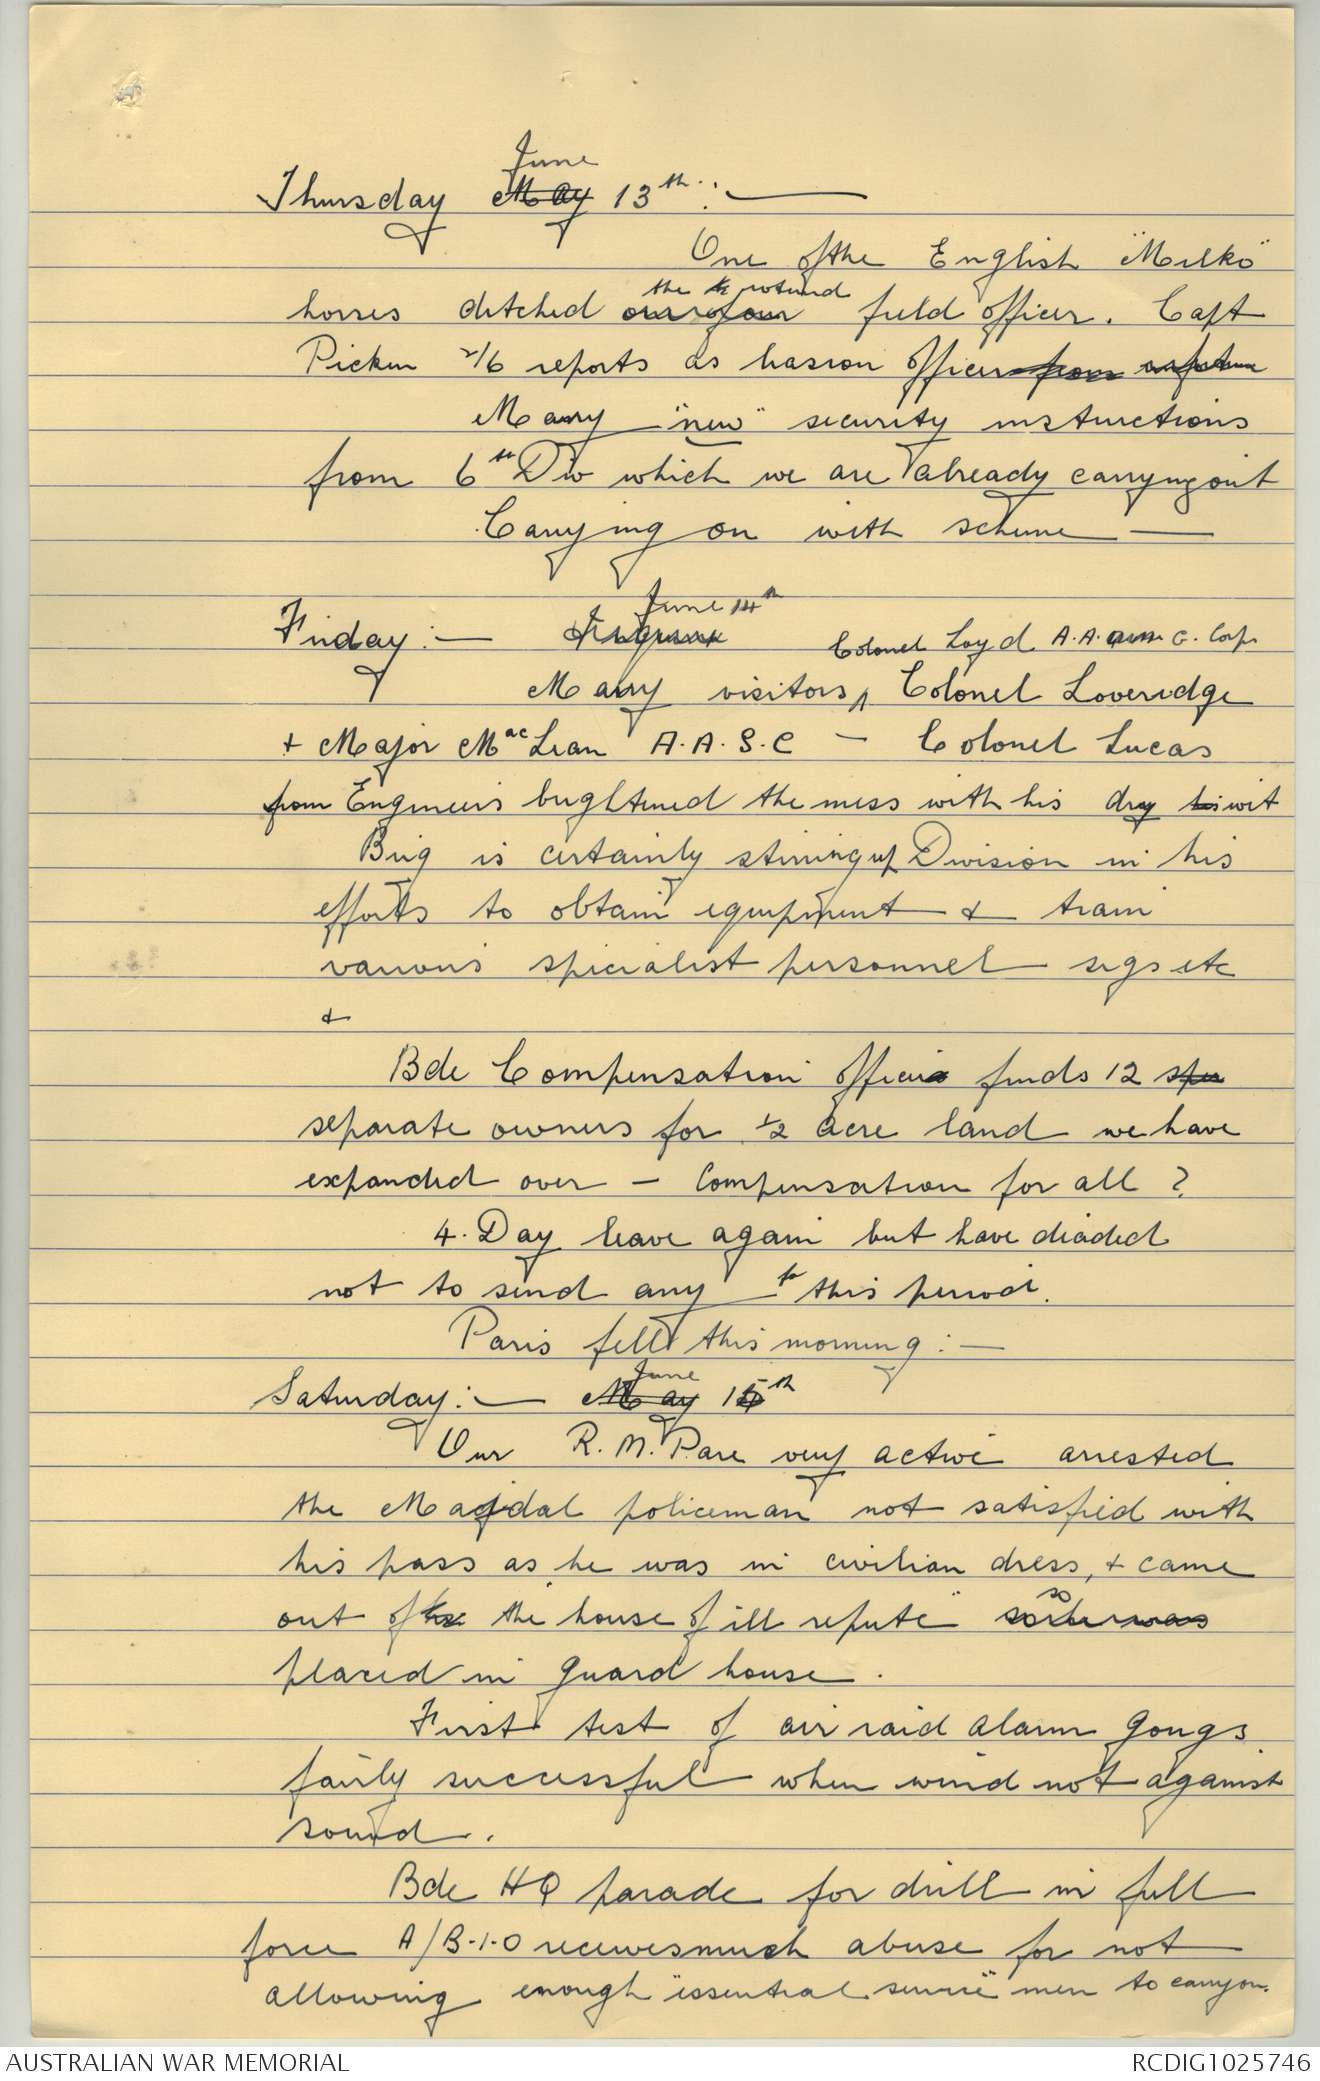 June
Thursday May 13th :—
One of the English "Milko"
the rotund
horses ditched one of our field officer. Capt
Picken 2/6 reports as liasion officer from
Many "new" security instructions
from 6th Div which we are already carrying out
Carrying on with scheme —
June 14th
Friday :—
Colonel Loyd A.A. G. Corps
Many visitors, Colonel Loveridge
+ Major MacLean A.A.S.C — Colonel Lucas
from Engineers brightened the mess with his dry his wit
Brig is certainly stirring up Division in his
efforts to obtain equipment & train
various specialist personnel sigs etc
&
Bde Compensation officer finds 12 sper
separate owners for 1/2 acre land we have
expanded over — Compensation for all ?
4. Day leave again but have diaded
not to send any to this period.
Paris fell this morning :—
June
Saturday :— May 15th
Our R.M. Pare very active arrested
the Magdal policeman not satisfied with
his pass as he was in civilian dress, + came
out of the the house of ill repute"
so
so he was
placed in guard house.
First test of air raid alarm gongs
fairly successful when wind not against
sound.
Bde HQ parade for drill in full
force A/B.1.O receives much abuse for not
allowing enough "essential service" men to carry on.
AUSTRALIAN WAR MEMORIAL
RCDIG1025746